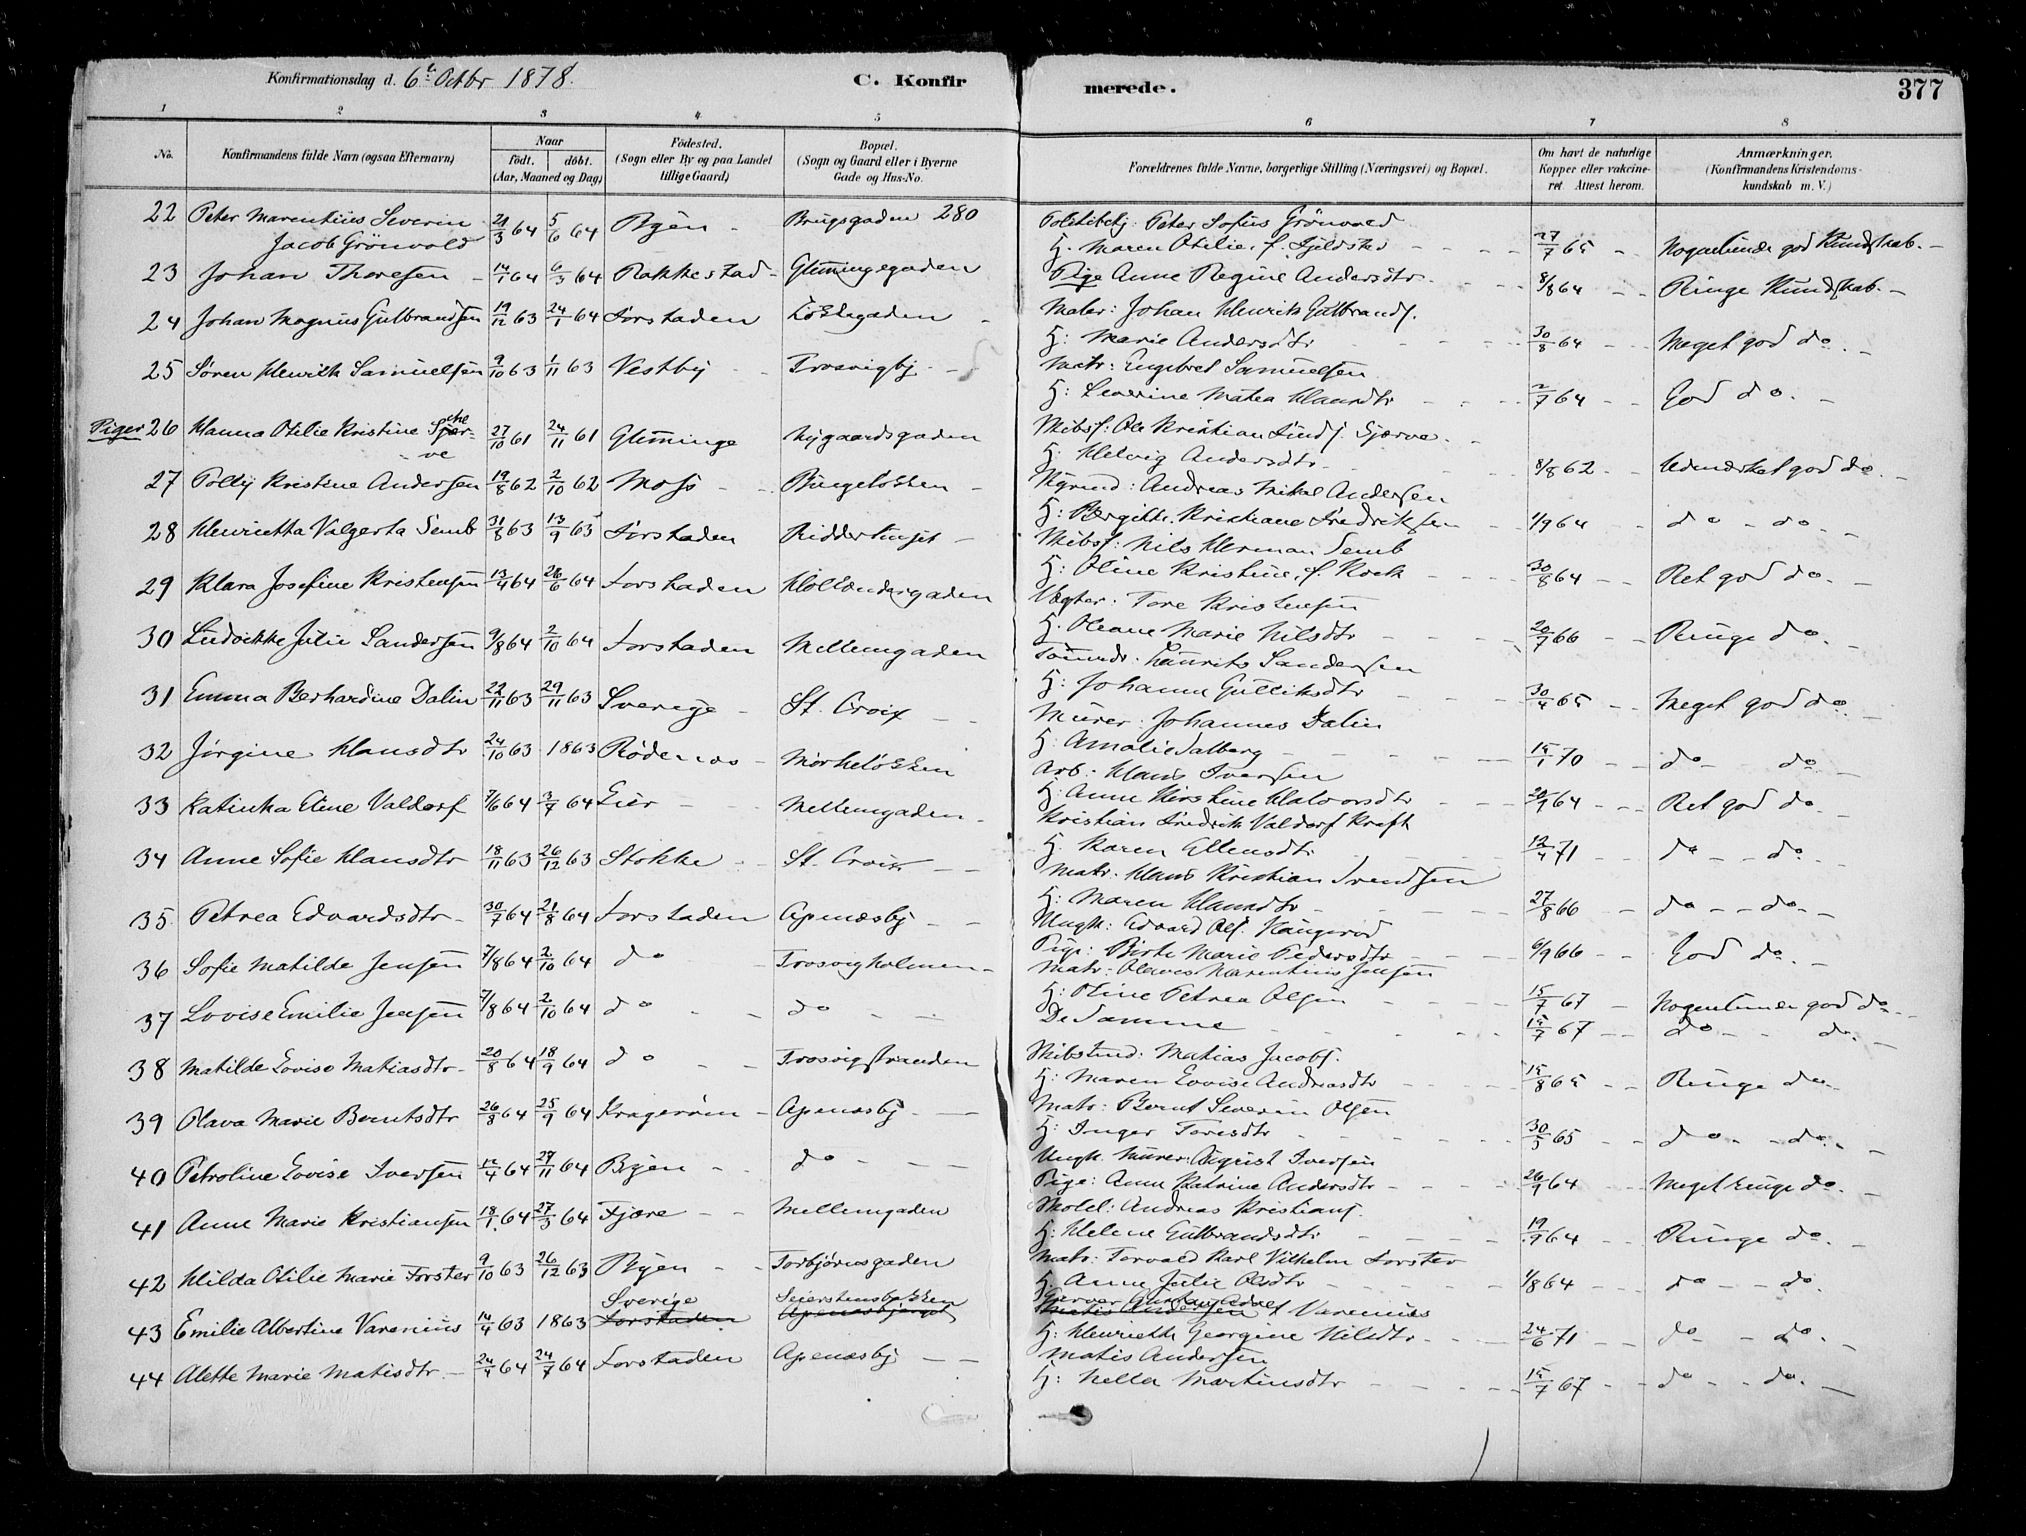 Konfirmationsdag d. 6te Octbr 1878. C. Konfir merede. 377
1 2 3 4 5 6 7 8
No. Konfirmandens fulde Navn (ogsaa Efternavn) Naar födt. döbt. (Aar, Maaned og Dag) Födested. (Sogn eller By og paa Landet tillige Gaard) Bopæl. (Sogn og Gaard eller i Byerne Gade og Hus-No. Forældrenes fulde Navne, borgerlige Stilling (Næringsvei) og Bopæl. Om havt de naturlige Kopper eller vakcineret. Attest herom. Anmærkninger. (Konfirmandens Kristendomskundskab m. V.)
22 Peter Marentius Severin 21/3 64 5/6 64 Byen - Brugsgaden 280 Politibetj. Peter Sofus Grönvold
Jacob Grönvold H. Maren Otilie, f. Fjeldstad 27/7 65 Nogenlunde god Kundskab. -
23 Johan Thoresen - 14/1 64 6/3 64 Rakkestad - Glemmingegaden Pige Anne Regine Andersdtr. 8/8 64 Ringe Kundskab. -
24 Johan Magnus Gulbrandsen 19/12 63 24/1 64 Forstaden Løkkegaden - Maler: Johan Henrik Gulbrands.
H: Marie Andersdtr 30/8 64 Meget god do. -
25 Søren Henrik Samuelsen 9/10 63 1/11 63 Vestby Trosvigbj. Matr: Engebret Samuelsen
H: Severine Matea Hansdtr 2/7 64 God do. -
Piger 26 Hanna Otilie Kristine Sjær-ve 27/10 61 24/11 61 Glemminge Nygaardsgaden Skibsf: Ole Kristian Lund f. Sjærve.
H: Helvig Andersdtr 8/8 62 Udmærket god do. -
27 Polly Kristine Andersen 19/8 62 2/10 62 Moss Bingeløkken - Styrmd: Andreas Mikal Andersen
H: Bergitte Kristiane Fredriksen 1/9 64 do - do. -
28 Henrietta Valgerta Semb 31/8 63 13/9 63 Forstaden Ridderhuset - Skibsf: Nils Herman Semb
H: Oline Kristine, f. Rock 30/8 64 Ret god do. -
29 Klara Josefine Kristensen 13/4 64 26/6 64 Forstaden Hollendergaden Vægter: Tore Kristensen
H. Oleane Marie Nilsdtr 20/7 66 Ringe do. -
30 Ludvikke Julie Sandersen 9/8 64 2/10 64 Forstaden Mellemgaden Tømmdr: Laurits Sandersen
H: Johanne Gulliksdtr 30/4 65 Meget god do. -
31 Emma Berhardine Dalin 22/11 63 29/11 63 Sverige - St. Croix Murer: Johannes Dalin
H: Amalie Salberg 15/1 70 do - do. -
32 Jørgine Hansdtr 24/10 63 1863 Rødenæs - Mørkeløkken Arb: Hans Iversen
H: Anne Kirstine Halvorsdtr 20/9 64 Ret god do. -
33 Katinka Eline Valdorf 7/6 64 3/7 64 Lier - Mellemgaden - Kristian Fredrik Valdorf Kraft
H: Karen Ellensdtr 12/4 71 do - - do. -
34 Anne Sofie Hansdtr 18/11 63 26/12 63 Stokke - St. Croix - Matr: Hans Kristian Svendsen
H: Maren Hansdtr 27/8 66 do - - do. -
35 Petrea Edvardsdtr - 30/7 64 21/8 64 Forstaden Apenæsbj - Ungk: Edvard Ols.
Pige: Birte Marie Pedersdtr 6/9 66 God do. -
36 Sofie Matilde Jensen 7/8 64 2/10 64 do - Trosvigholmen - Matr: Olaves Marentius Jensen
H: Oline Petrea Olsen 15/7 67 - Nogenlunde god do. -
37 Lovise Emilie Jensen 7/8 64 2/10 64 do - do - De Samme 15/7 67 - do - do. -
38 Matilde Lovise Matiasdtr - 20/8 64 18/9 64 do - Trosvigstranden Skibstmd: Matias Jacobs.
H: Maren Lovise Andreasdtr 15/8 65 Ringe do -
39 Olava Marie Berntsdtr 26/8 64 25/9 64 Kragerøen - Apenæsbj - Matr: Bernt Severin Olsen
H: Inger Toresdtr 30/5 65 do - - do. -
40 Petroline Lovise Iversen 12/4 64 27/11 64 Byen - do - Ungk. Murer: August Iversen
Pige: Anne Katrine Andersdtr 26/9 64 Meget ringe do. -
41 Anne Marie Kristiansen 18/1 64 27/3 64 Fjære - Mellemgaden Skolel: Andreas Kristians.
H: Helene Gulbrandsdtr 19/9 64 Ringe do. -
42 Hilda Otilie Marie Forster 9/10 63 26/12 63 Byen - Torbjørnsgaden Matr: Torvald Karl Vilhelm Forster
H. Anne Julie Olsdtr 1/8 64 do - - do
43 Emilie Albertine Varenius 14/4 63 1863 Sverige Forstaden Seierstensbakken Apenæsbjerget Garver Gustav Adolf Matis Andersen Varenius
H: Henriette Georgine Nilsdtr 24/6 71 do - do. -
44 Alette Marie Matisdtr - 24/4 64 24/7 64 Forstaden Apenæsbj - Matis Andersen
H: Nella Martinsdtr 15/7 67 do - - do. -